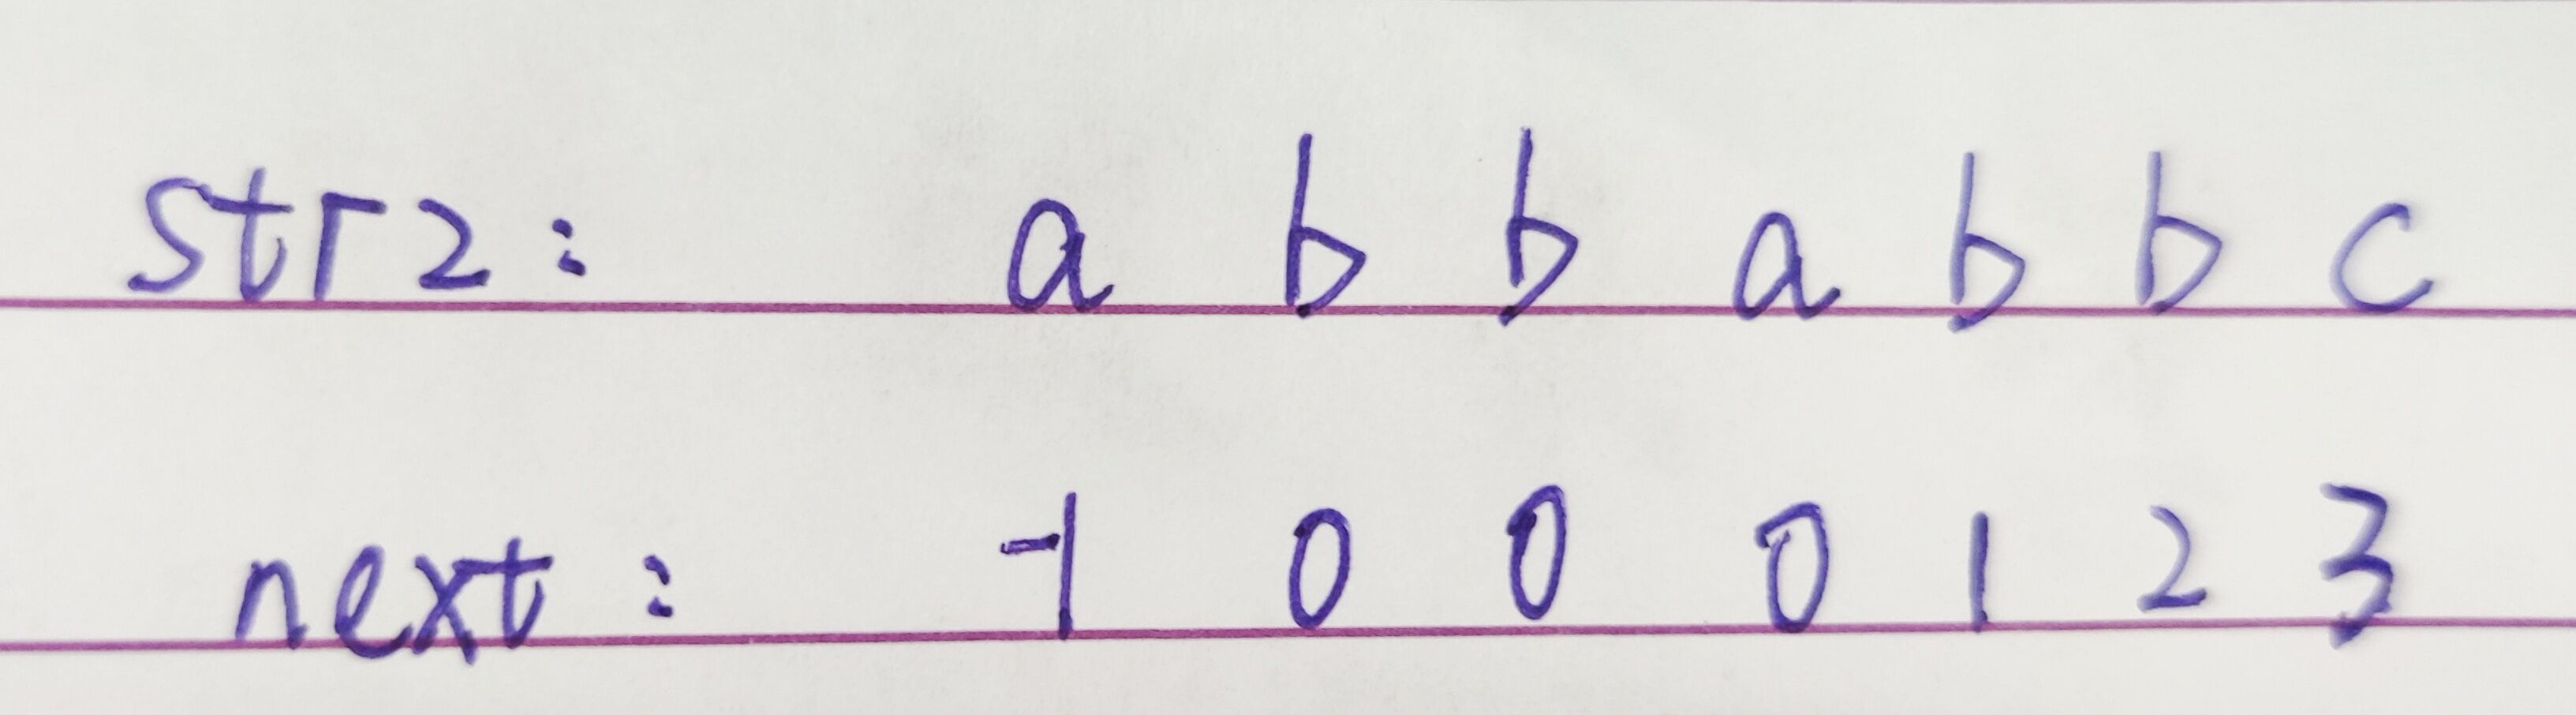 str2: a b b a b b c
next: -1 0 0 0 1 2 3